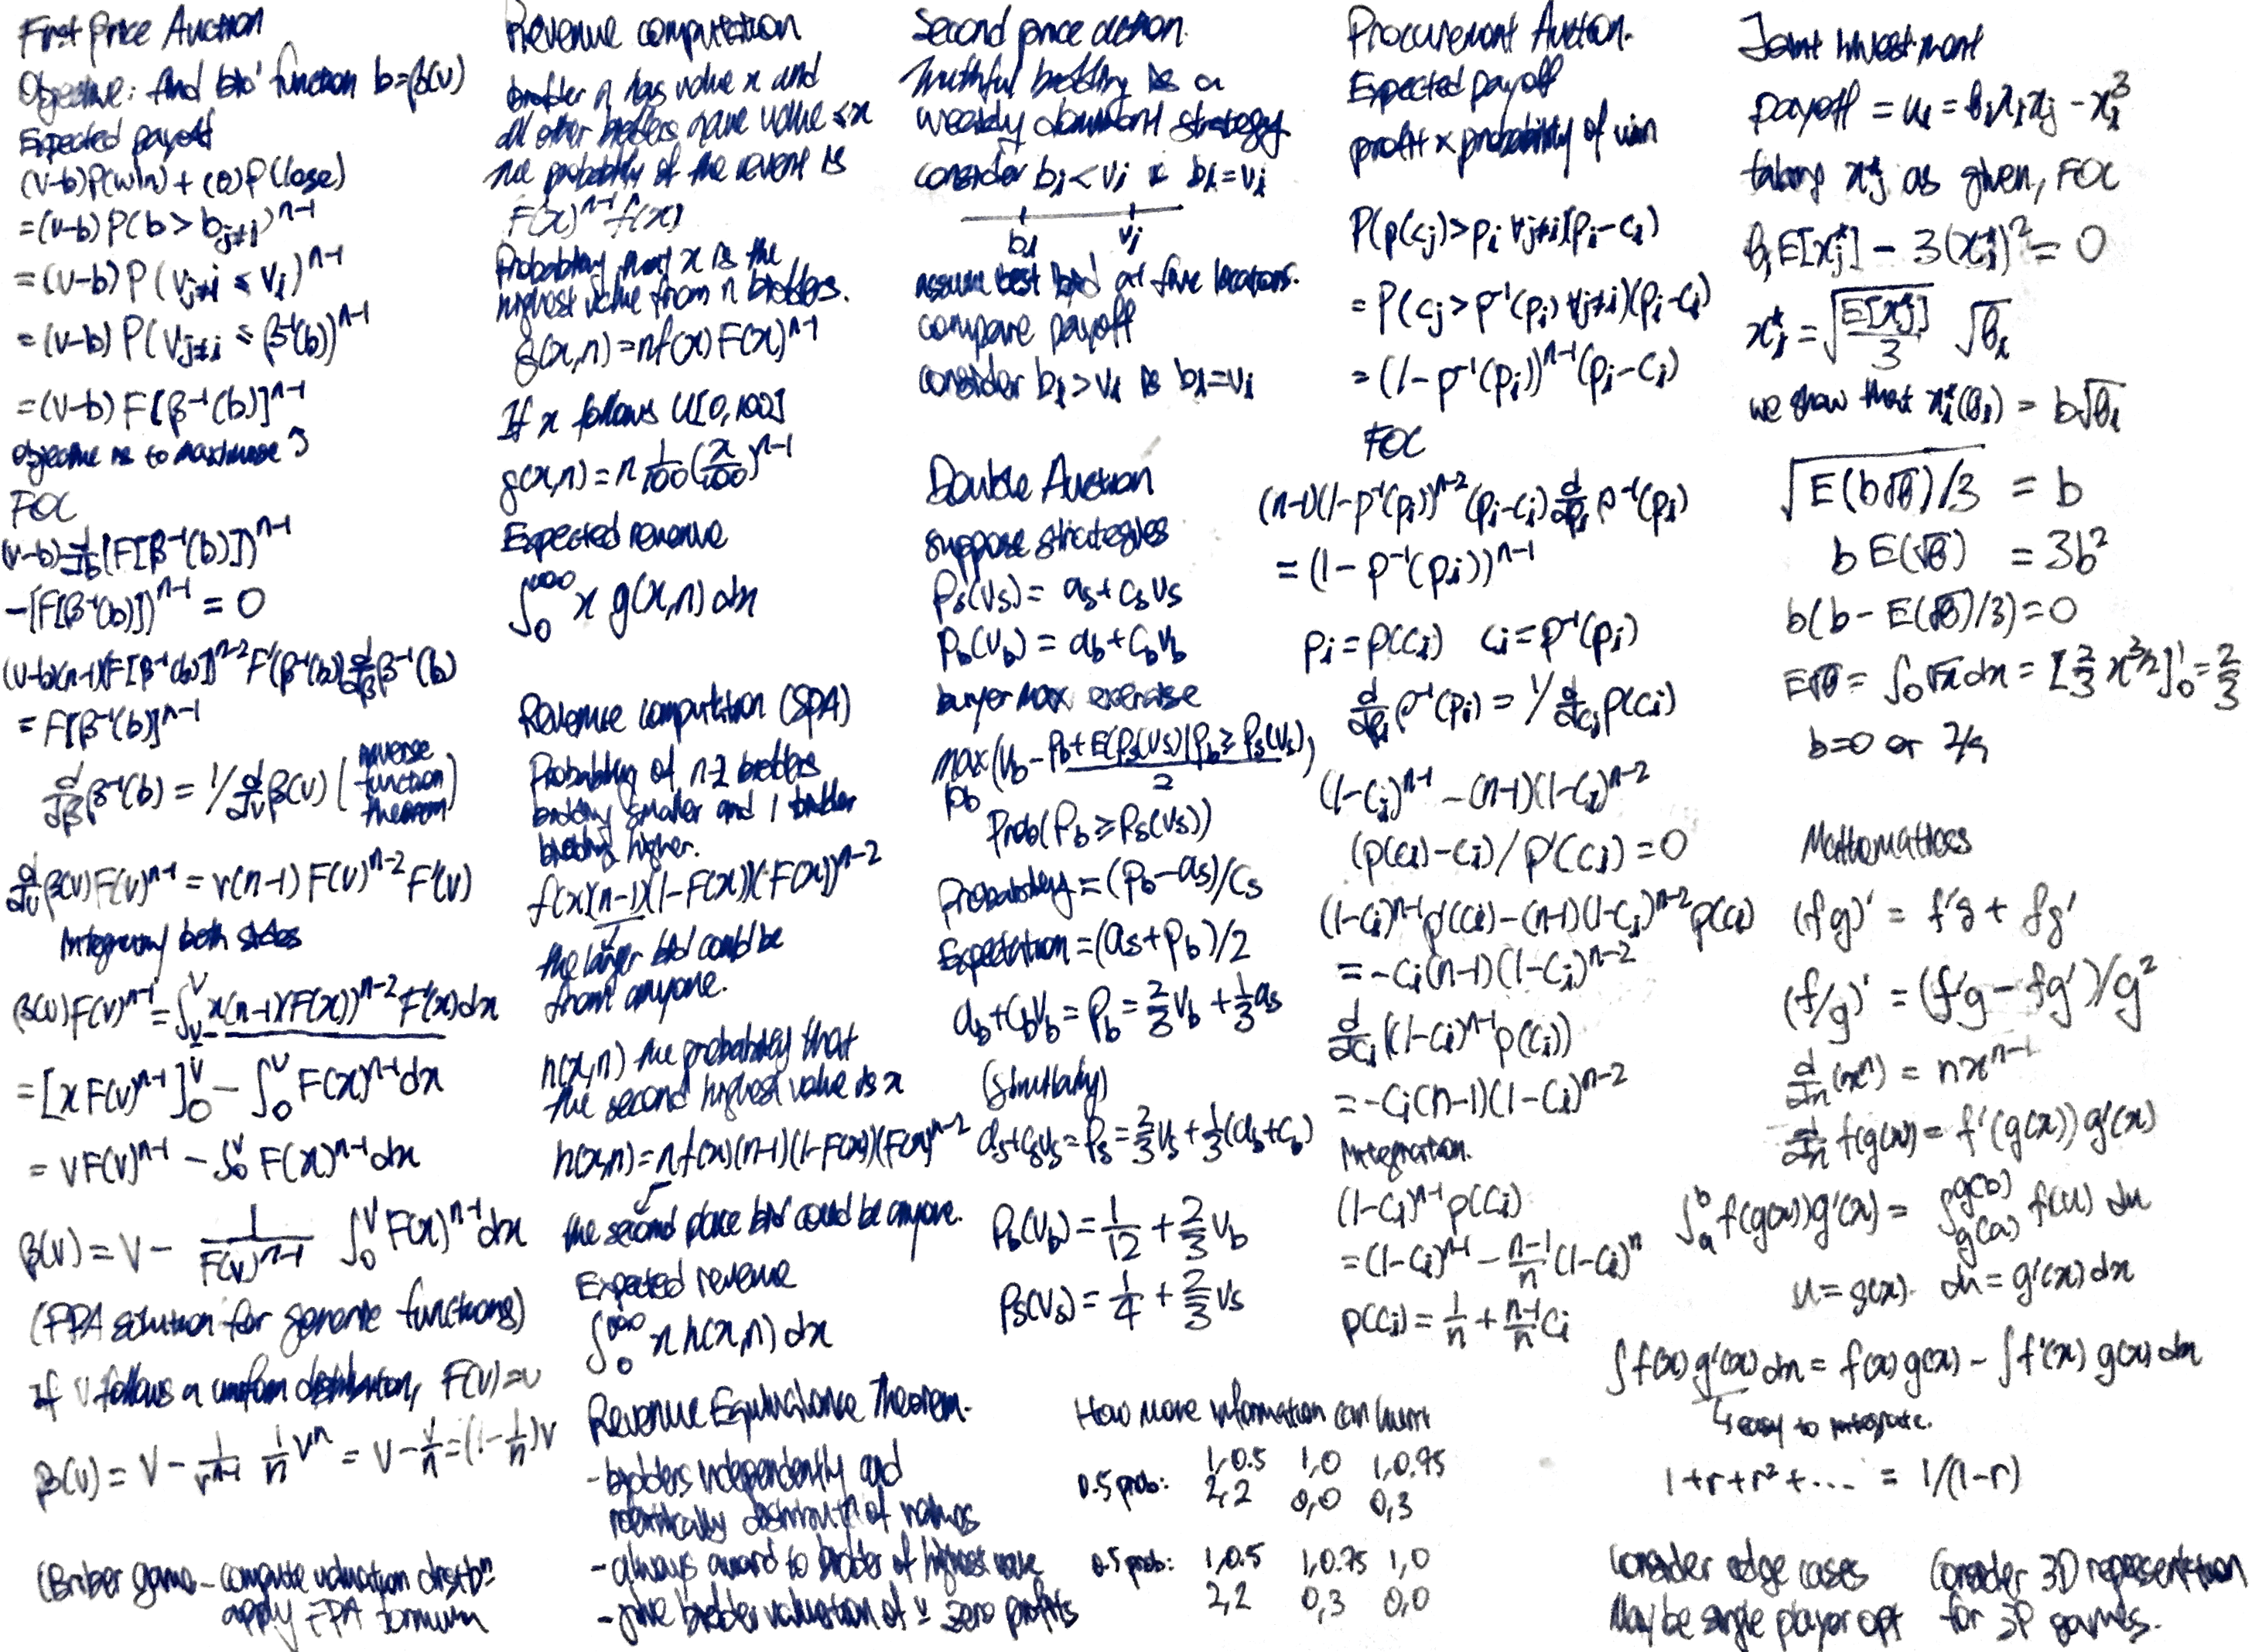 First Price Auction
Objective: find bid function b=β(v)
Expected payoff
(v-b)P(win) + (0)P(lose)
=(v-b) P(b > b_{j≠i})^{n-1}
= (v-b) P(v_{j≠i} ≤ v_i)^{n-1}
= (v-b) P(v_{j≠i} ≤ β^{-1}(b))^{n-1}
= (v-b) F[β^{-1}(b)]^{n-1}
objective is to maximise
FOC
(v-b) d/db (F[β^{-1}(b)])^{n-1}
-(F[β^{-1}(b)])^{n-1} = 0
(v-b)(n-1)(F[β^{-1}(b)])^{n-2} F'(β^{-1}(b)) d/dβ β^{-1}(b)
= F[β^{-1}(b)]^{n-1}
d/dβ β^{-1}(b) = 1/ d/dv β(v) (inverse function theorem)
d/dv β(v)F(v)^{n-1} = v(n-1) F(v)^{n-2} F'(v)
Integrating both sides
β(v)F(v)^{n-1} = ∫_v^v x(n-1)(F(x))^{n-2} F'(x)dx
= [x F(v)^{n-1}]_0^v - ∫_0^v F(x)^{n-1}dx
= vF(v)^{n-1} - ∫_0^v F(x)^{n-1}dx
β(v) = v - 1/F(v)^{n-1} ∫_0^v F(x)^{n-1}dx
(FPA solution for generic functions)
If v follows a uniform distribution, F(v)=v
β(v) = v - 1/v^{n-1} 1/n v^n = v - v/n = (1-1/n)v
(Briber game - compute valuation distbⁿ
apply FPA formula
Revenue computation
bidder n has value x and
all other bidders have value ≤x
The probability of the event is
F(x)^{n-1} f(x)
Probability that x is the
highest value from n bidders.
g(x,n) = nf(x)F(x)^{n-1}
If x follows U[0,100]
g(x,n) = n 1/100 (x/100)^{n-1}
Expected revenue
∫_0^{100} x g(x,n) dx
Revenue computation (SPA)
Probability of n-2 bidders
bidding smaller and 1 bidder
bidding higher.
f(x)(n-1)(1-F(x))(F(x))^{n-2}
the larger bid could be
from anyone.
h(x,n) the probability that
the second highest value is x
h(x,n) = nf(x)(n-1)(1-F(x))(F(x))^{n-2}
the second place bid could be anyone.
Expected revenue
∫_0^{100} x h(x,n) dx
Revenue Equivalence Theorem.
- bidders independently and
identically distribⁿ of values
- always award to bidder of highest value
- give bidder valuation of v zero profits
Second price auction.
truthful bidding is a
weakly dominant strategy.
consider b_i < v_i & b_i = v_i
b_i v_i
assume best bid at five locations.
compare payoff
consider b_i > v_i & b_i = v_i
Double Auction
suppose strategies
P_s(v_s) = a_s + c_s v_s
P_b(v_b) = a_b + c_b v_b
buyer max exercise
max_{P_b} (v_b - (P_b + E(P_s(v_s) | P_b ≥ P_s(v_s)))/2)
Prob(P_b ≥ P_s(v_s))
Probability = (P_b - a_s)/c_s
Expectation = (a_s + P_b)/2
a_b + c_b v_b = P_b = 2/3 v_b + 1/3 a_s
(Similarly)
a_s + c_s v_s = P_s = 2/3 v_s + 1/3 (a_b + c_b)
P_b(v_b) = 1/12 + 2/3 v_b
P_s(v_s) = 1/4 + 2/3 v_s
How more information can hurt
0.5 prob: 1,0.5 1,0 1,0.75
2,2 0,0 0,3
0.5 prob: 1,0.5 1,0.75 1,0
2,2 0,3 0,0
Procurement Auction.
Expected payoff
profit × probability of win
P(p(c_j) > p_i ∀j≠i)(p_i - c_i)
= P(c_j > p^{-1}(p_i) ∀j≠i)(p_i - c_i)
= (1 - p^{-1}(p_i))^{n-1} (p_i - c_i)
FOC
(n-1)(1-p^{-1}(p_i))^{n-2} (p_i - c_i) d/dp_i p^{-1}(p_i)
= (1 - p^{-1}(p_i))^{n-1}
p_i = p(c_i) c_i = p^{-1}(p_i)
d/dp_i p^{-1}(p_i) = 1/ d/dc_i p(c_i)
(1-c_i)^{n-1} - (n-1)(1-c_i)^{n-2}
(p(c_i) - c_i)/p'(c_i) = 0
(1-c_i)^{n-1} p'(c_i) - (n-1)(1-c_i)^{n-2} p(c_i)
= -c_i(n-1)(1-c_i)^{n-2}
d/dc_i ((1-c_i)^{n-1} p(c_i))
= -c_i(n-1)(1-c_i)^{n-2}
Integration.
(1-c_i)^{n-1} p(c_i)
= (1-c_i)^{n-1} - n-1/n (1-c_i)^n
p(c_i) = 1/n + n-1/n c_i
Joint investment
payoff = u_i = θ_i x_i x_j - x_i^3
taking x_j^* as given, FOC
θ_i E[x_j^*] - 3(x_i^*)^2 = 0
x_i^* = √(E[x_j^*]/3) √θ_i
we show that x_i^*(θ_i) = b√θ_i
√(E(b√θ)/3) = b
b E(√θ) = 3b^2
b(b - E(√θ)/3) = 0
E√θ = ∫_0^1 √x dx = [2/3 x^{3/2}]_0^1 = 2/3
b=0 or 2/9
Mathematics
(fg)' = f'g + fg'
(f/g)' = (f'g - fg')/g^2
d/dx (x^n) = nx^{n-1}
d/dx f(g(x)) = f'(g(x)) g'(x)
∫_a^b f(g(x))g'(x) = ∫_{g(a)}^{g(b)} f(u) du
u = g(x). du = g'(x)dx
∫f(x) g'(x) dx = f(x) g(x) - ∫f'(x) g(x) dx
↳ easy to integrate.
1+r+r²+.... = 1/(1-r)
Consider edge cases
May be single player opt
Consider 3D representation
for 3P games.